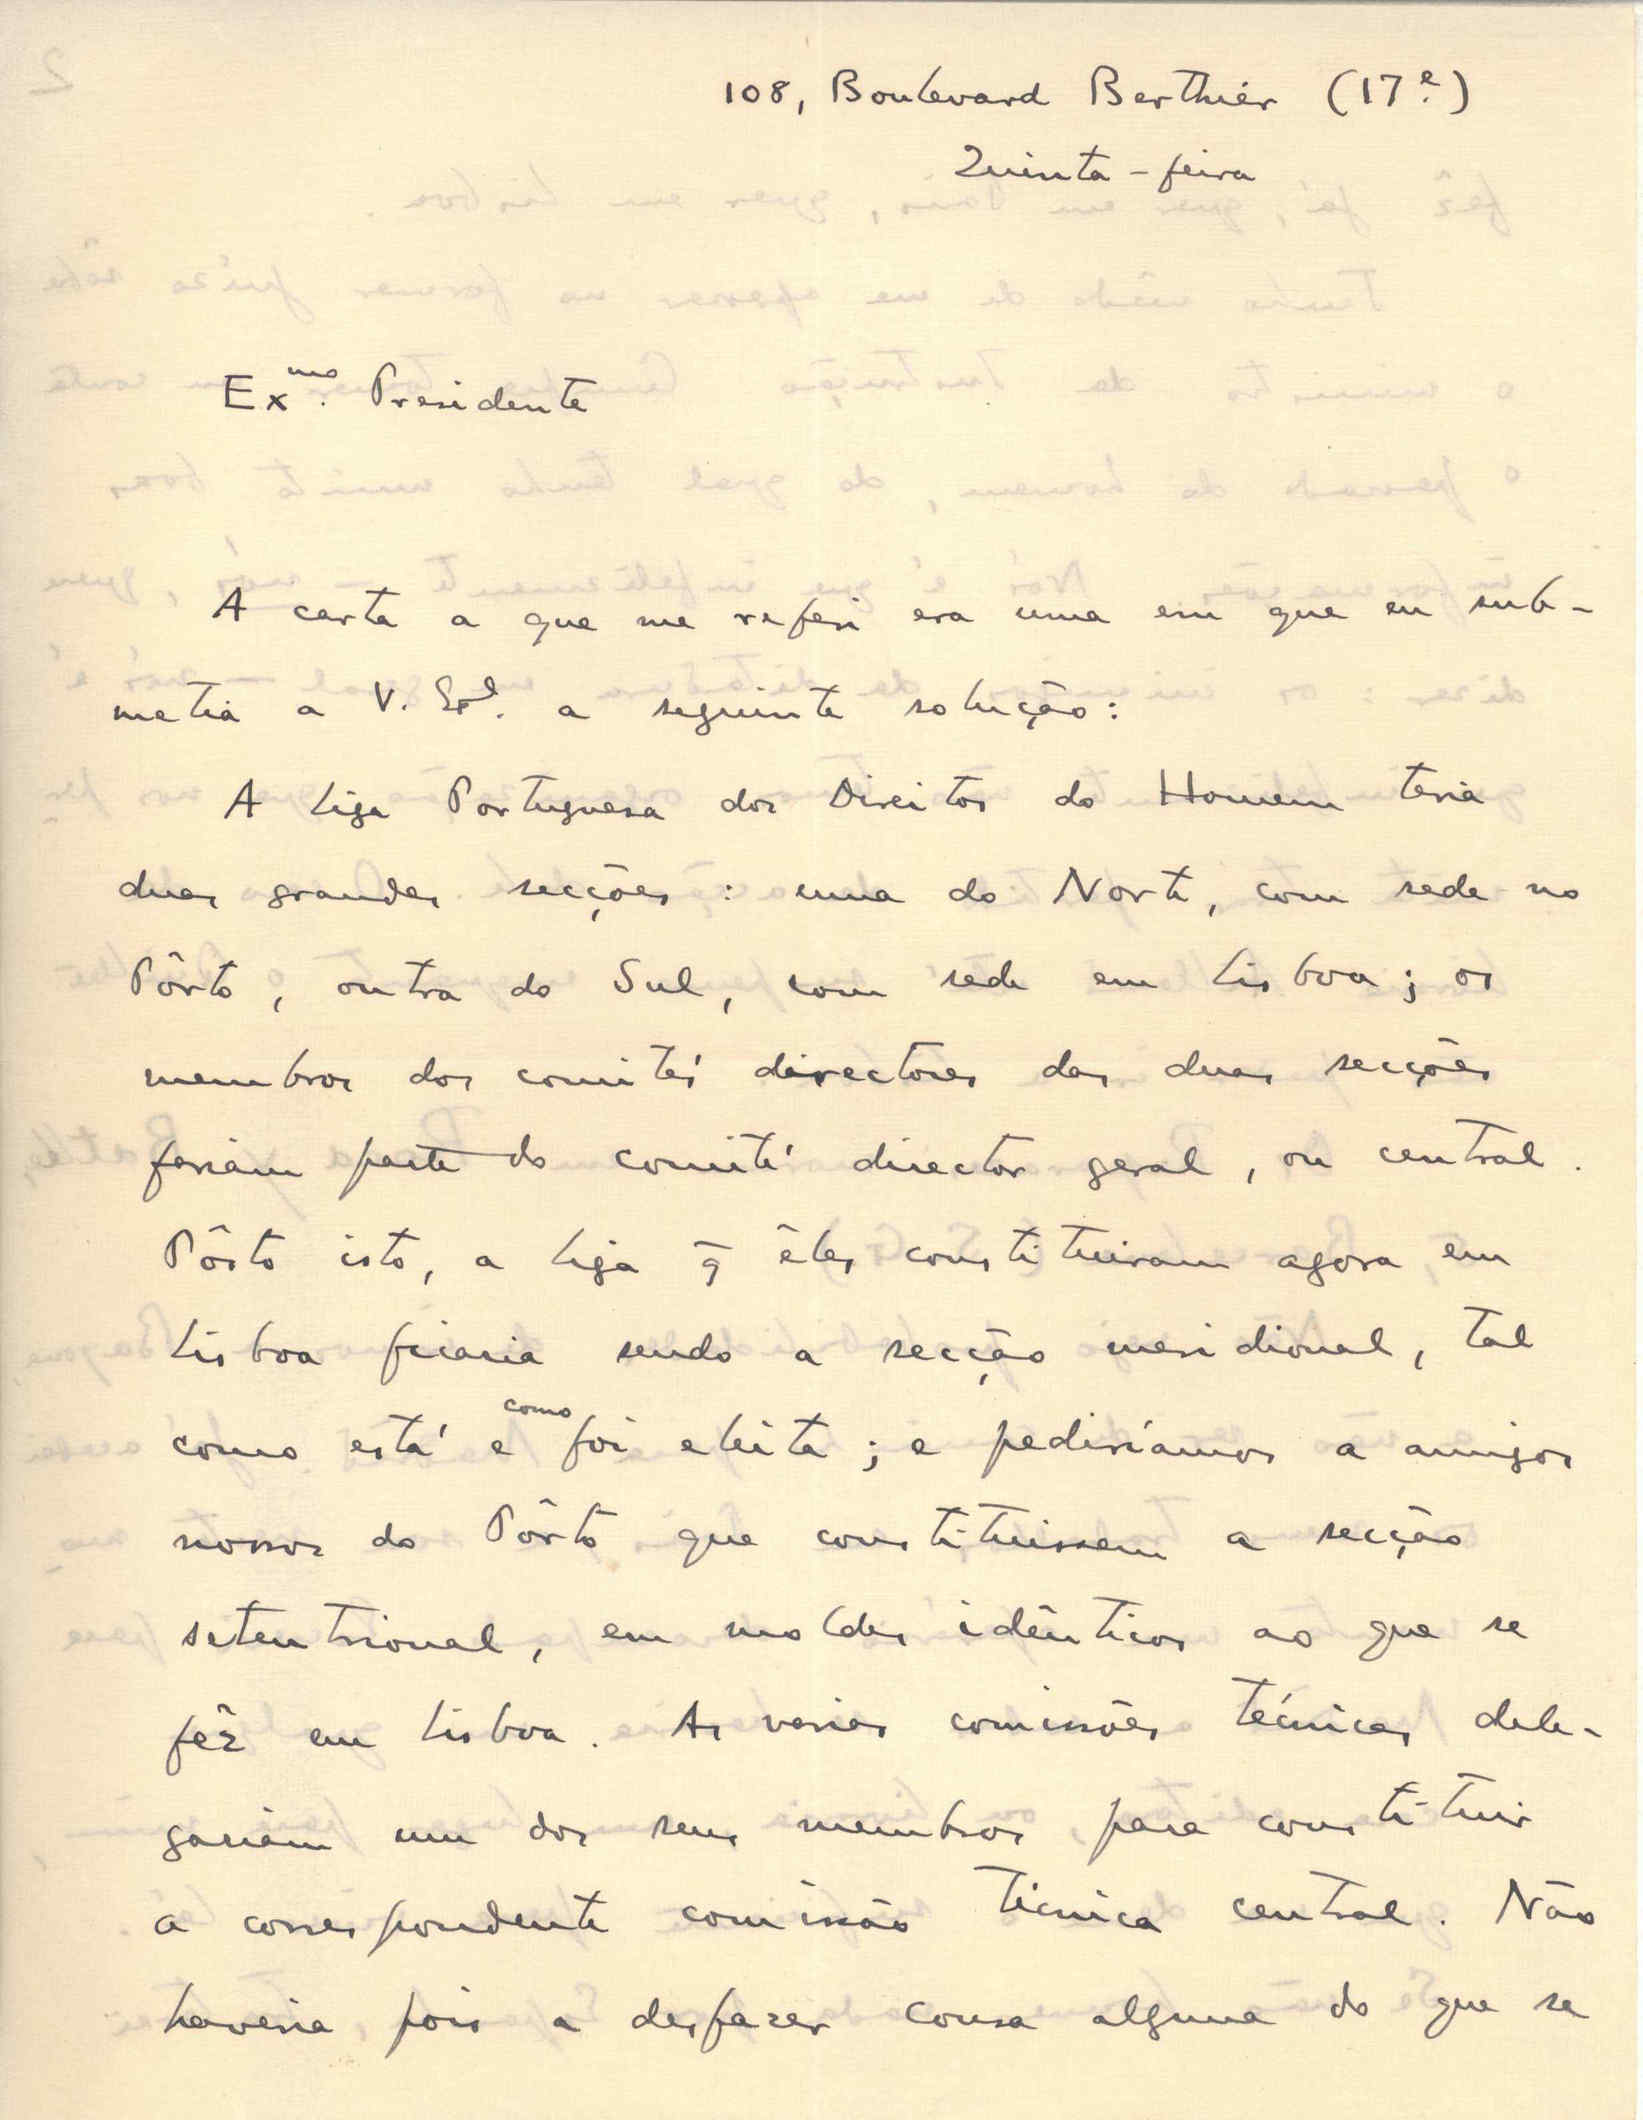 108, Boulevard Berthier (17e.)
Quinta-feira
Exmo. Presidente
A carta a que me referi era uma em que eu sub-
metia a V. Exª. a seguinte solução:
A Liga Portuguesa dos Direitos do Homem teria
duas grandes secções: uma do Norte, com sede no
Pôrto, outra do Sul, com sede em Lisboa; os
membros dos comités directores das duas secções
fariam parte do comité director geral, ou central.
Pôsto isto, a Liga q̃ êles constituiram agora em
Lisboa ficaria sendo a secção meridional, tal
como está e como foi eleita; e pediríamos a amigos
nossos do Pôrto que constituissem a secção
setentrional, em moldes idênticos ao que se
fêz em Lisboa. As varias comissões técnicas dele-
gariam um dos seus membros para constituir
a correspondente comissão técnica central. Não
haveria pois a desfazer cousa alguma do que se